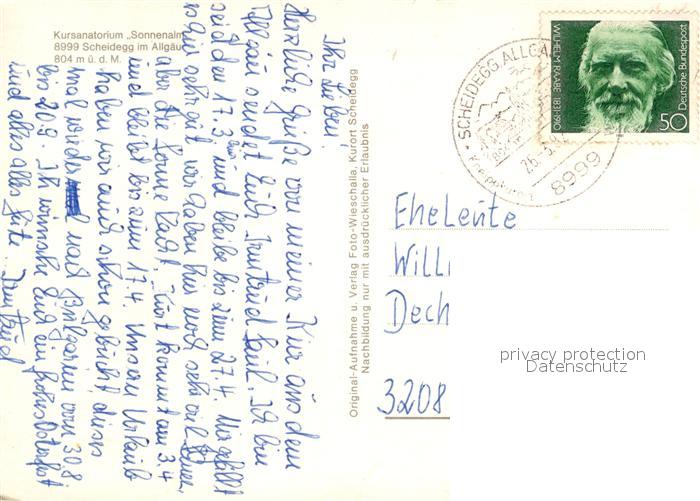 Kursanatorium „Sonnenalm
8999 Scheidegg im Allgäu
804 m ü. d. M.
Ihr Lieben!
Herzliche Grüße von meiner Kur aus dem
sendet Euch Irmtrud Ich bin
seit den 17.3. hier und bleibe bis zum 27.4. Mir gefällt
es hier sehr gut wir haben hier noch sehr viel Schnee,
aber die Sonne lacht. Kurt kommt am 3.4
und bleibt bis zum 17.4. Unsern Urlaub
haben wir auch schon gebucht, dieses
mal wieder nach Bulgarien vom 30.8
bis 20.9. Ich wünsche Euch ein frohes Osterfest
und alles alles Gute. Irmtrud
Original-Aufnahme u. Verlag Foto-Wieschalla, Kurort Scheidegg
Nachbildung nur mit ausdrücklicher Erlaubnis
SCHEIDEGG, ALLGÄ
8999
WILHELM RAABE 1831-1910
Deutsche Bundespost
50
Eheleute
Willi
Dech
3208
privacy protection
Datenschutz